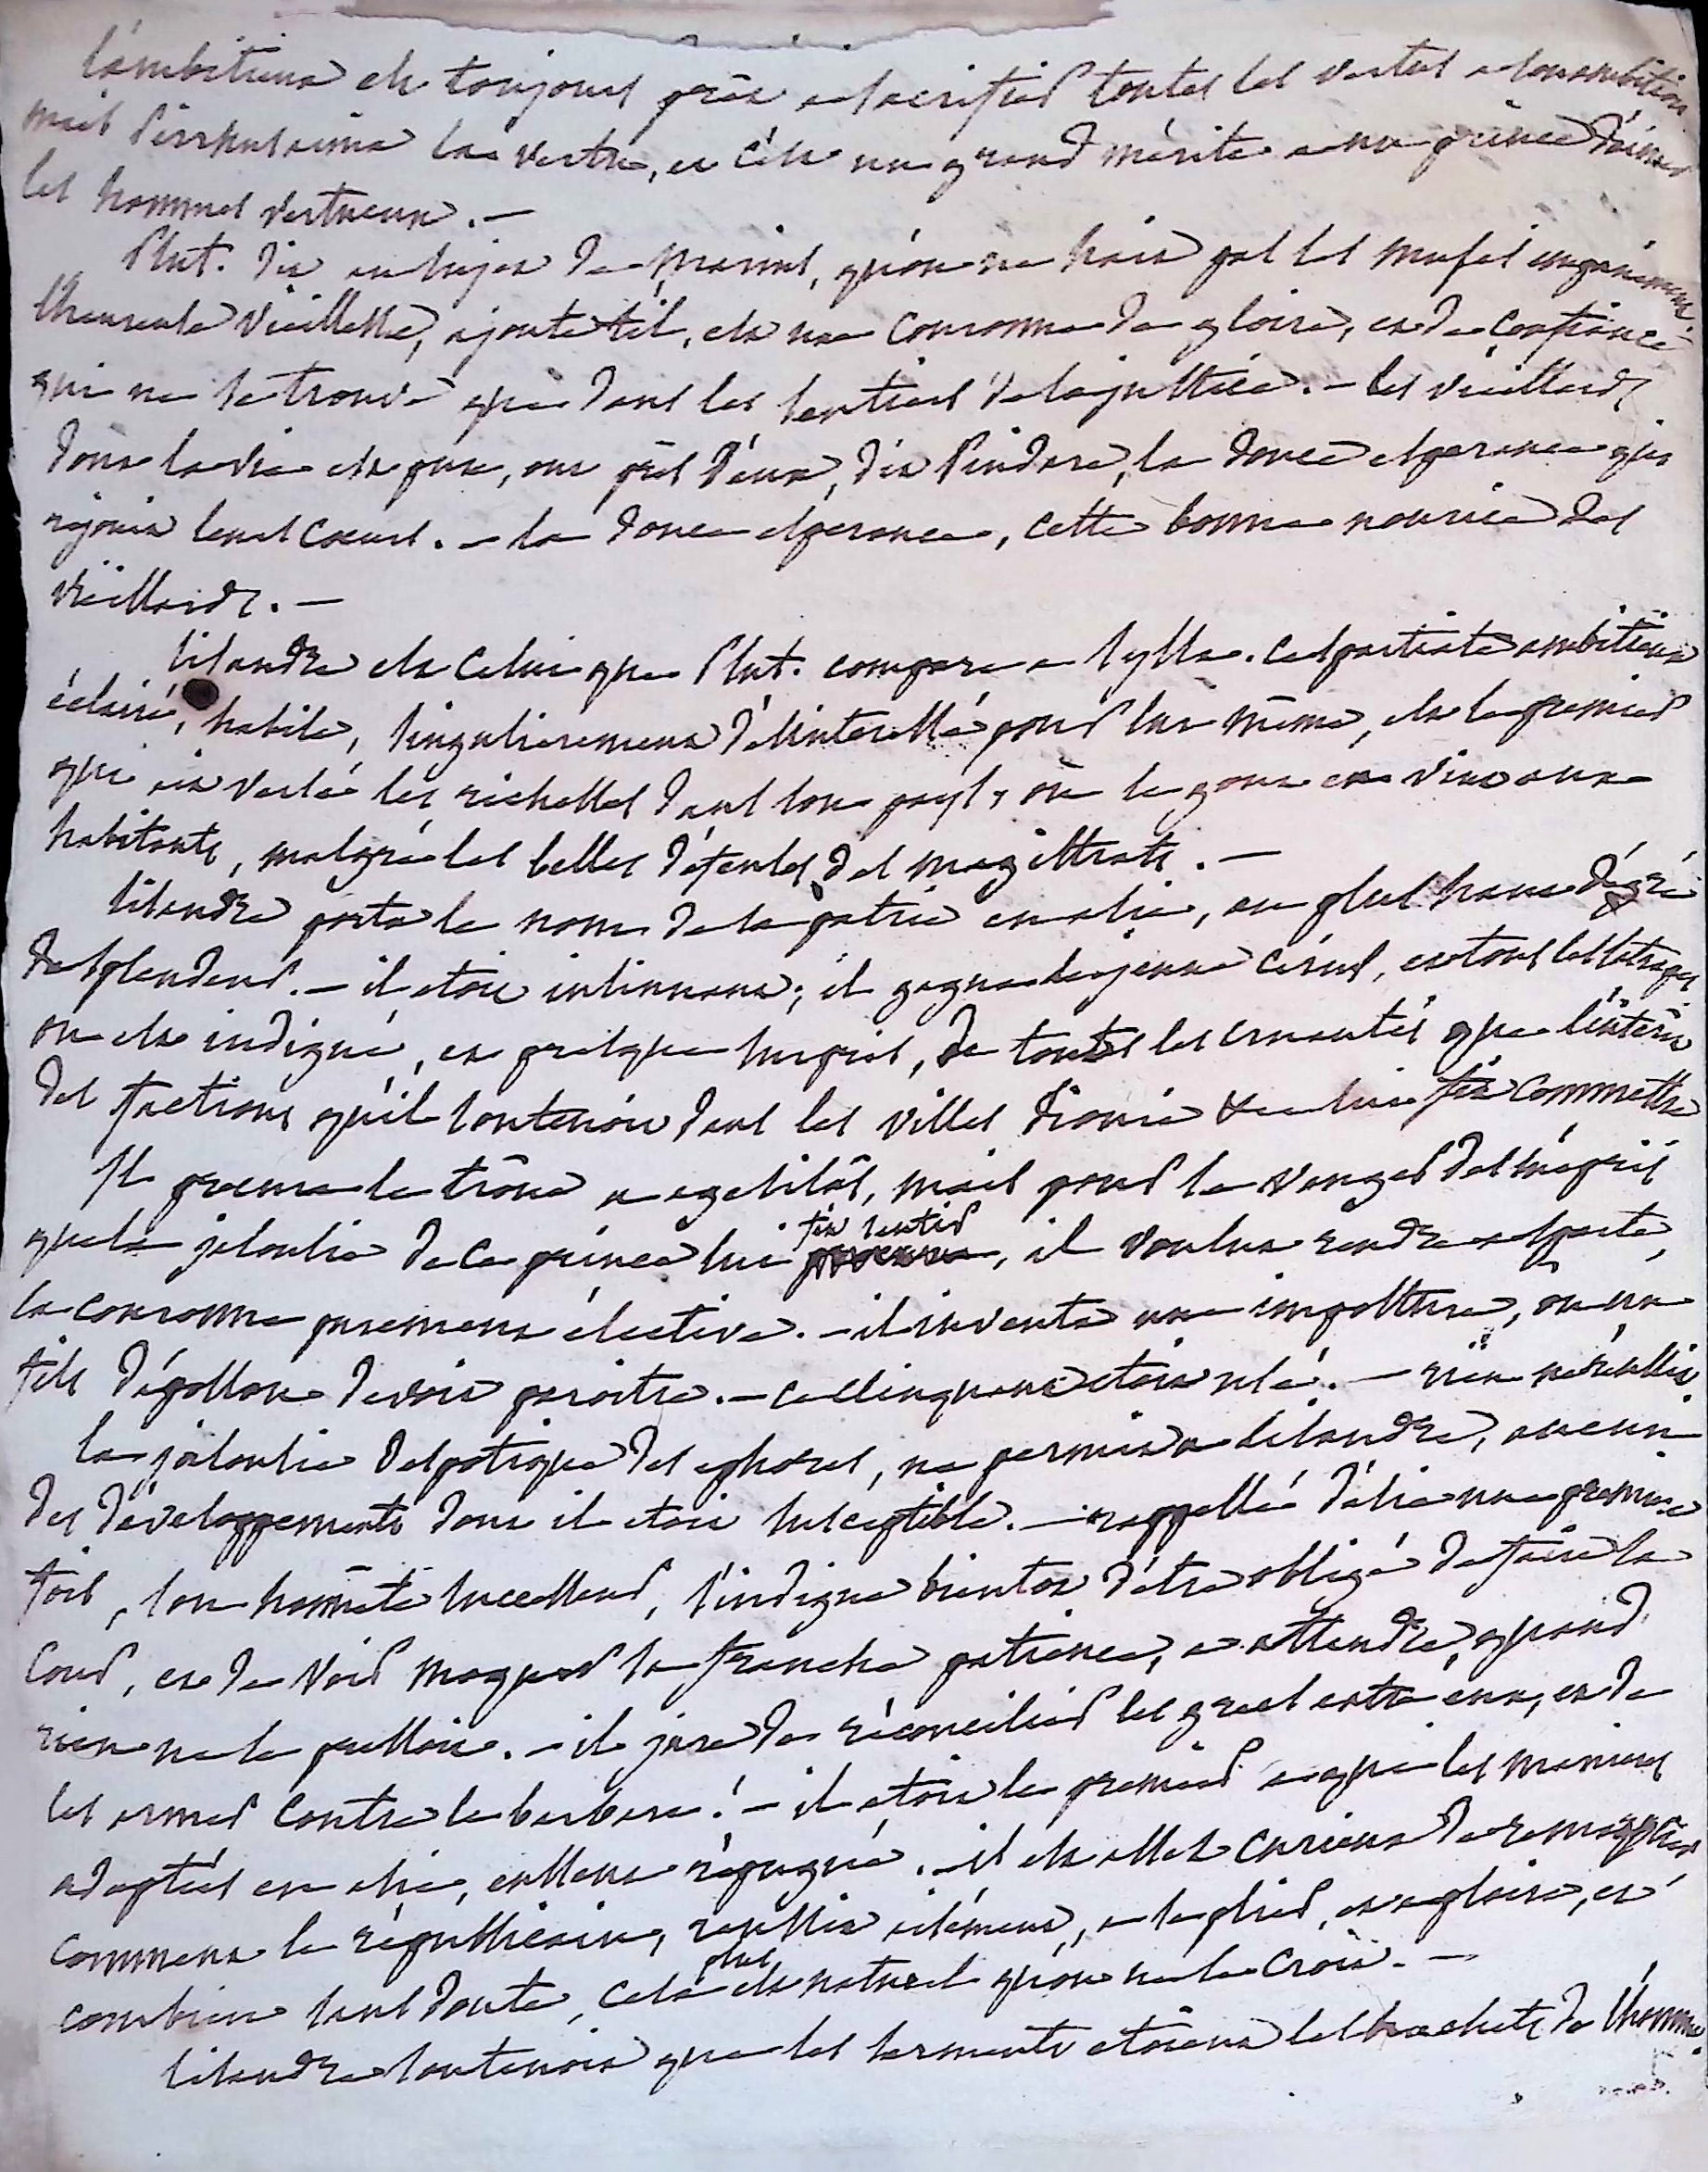 l'ambitieux est toujours près a sacrifier toutes les vertus a son ambition
mais Pirrhus aima la vertu, et c'est un grand mérite a un prince d'aimer
les hommes vertueux. —
Plut. dit au sujet de Marius, qu'on ne hait pas les muses impunément.
l'heureuse vieillesse, ajoute t'il, est une couronne de gloire, et de confiance
qui ne se trouve que dans les sentiers de la justice. — les vieillards
dont la vie est pure, ont près d'eux, dit Pindare, la douce esperance qui
rejouit leurs coeurs. — la douce esperance, cette bonne nourice des
vieillards. —
Lisandre est celui que Plut. compare a Sylla. ce spartiate ambitieux
éclairé, habile, singulierement désinteressé pour lui même, est le premier
qui ait versé les richesses dans son pays, où le gout en vint aux
habitants, malgré les belles défenses des magistrats. —
Lisandre porta le nom de sa patrie en asie, au plus haut dégré
de splendeur. — il etoit insinuant; il gagna le jeune Cirus, et tous les satrapes
on est indigné, et presque surpris, de toutes les cruautés que l'intérêt
des factions qu'il soutenoit dans les villes d'ionie &c lui fit commettre
Il procura le trône a agesilas, mais pour se venger des mépris
que la jalousie de ce prince lui fit sentir, il voulut rendre a sparte,
la couronne purement élective. — il inventa une imposture, ou un
fils d'apollon devoit paroitre. — ce clinquant etoit usé. — rien ne réussit.
la jalousie despotique des ephores, ne permit a Lisandre, aucun
des développements dont il etoit susceptible. — rappellé d'asie une premiere
fois, son honnête successeur, s'indigna bientot d'être obligé de faire la
cour, et de voir moquer sa franche patience, a attendre, quand
rien ne le pressoit. — il jura de réconcilier les grecs entre eux, et de
les armer contre le barbare! — il etoit le premier a qui les manieres
adoptées en asie, eussent répugné. — il est assez curieux de remarquer
comment le républicain, réussit aisément, a se plier, et a plaire, et
combien sans doute, cela est plus naturel qu'on ne le croit. —
Lisandre soutenoit que les serments etoient les hochets de l'homme.